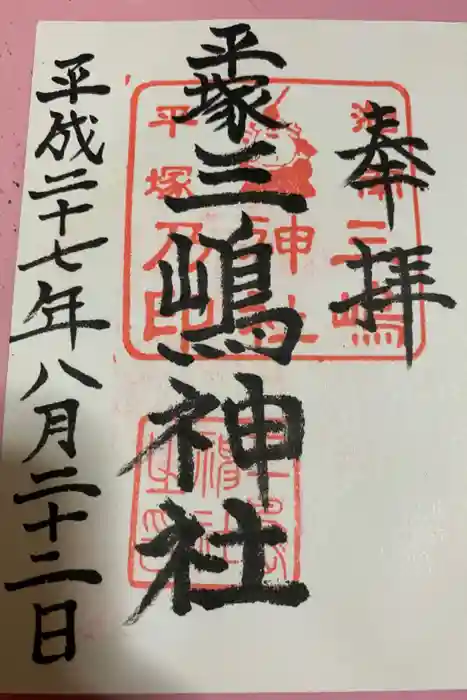 奉拝
平塚三嶋神社
平成二十七年八月二十二日
三嶋
神社
平塚乃印